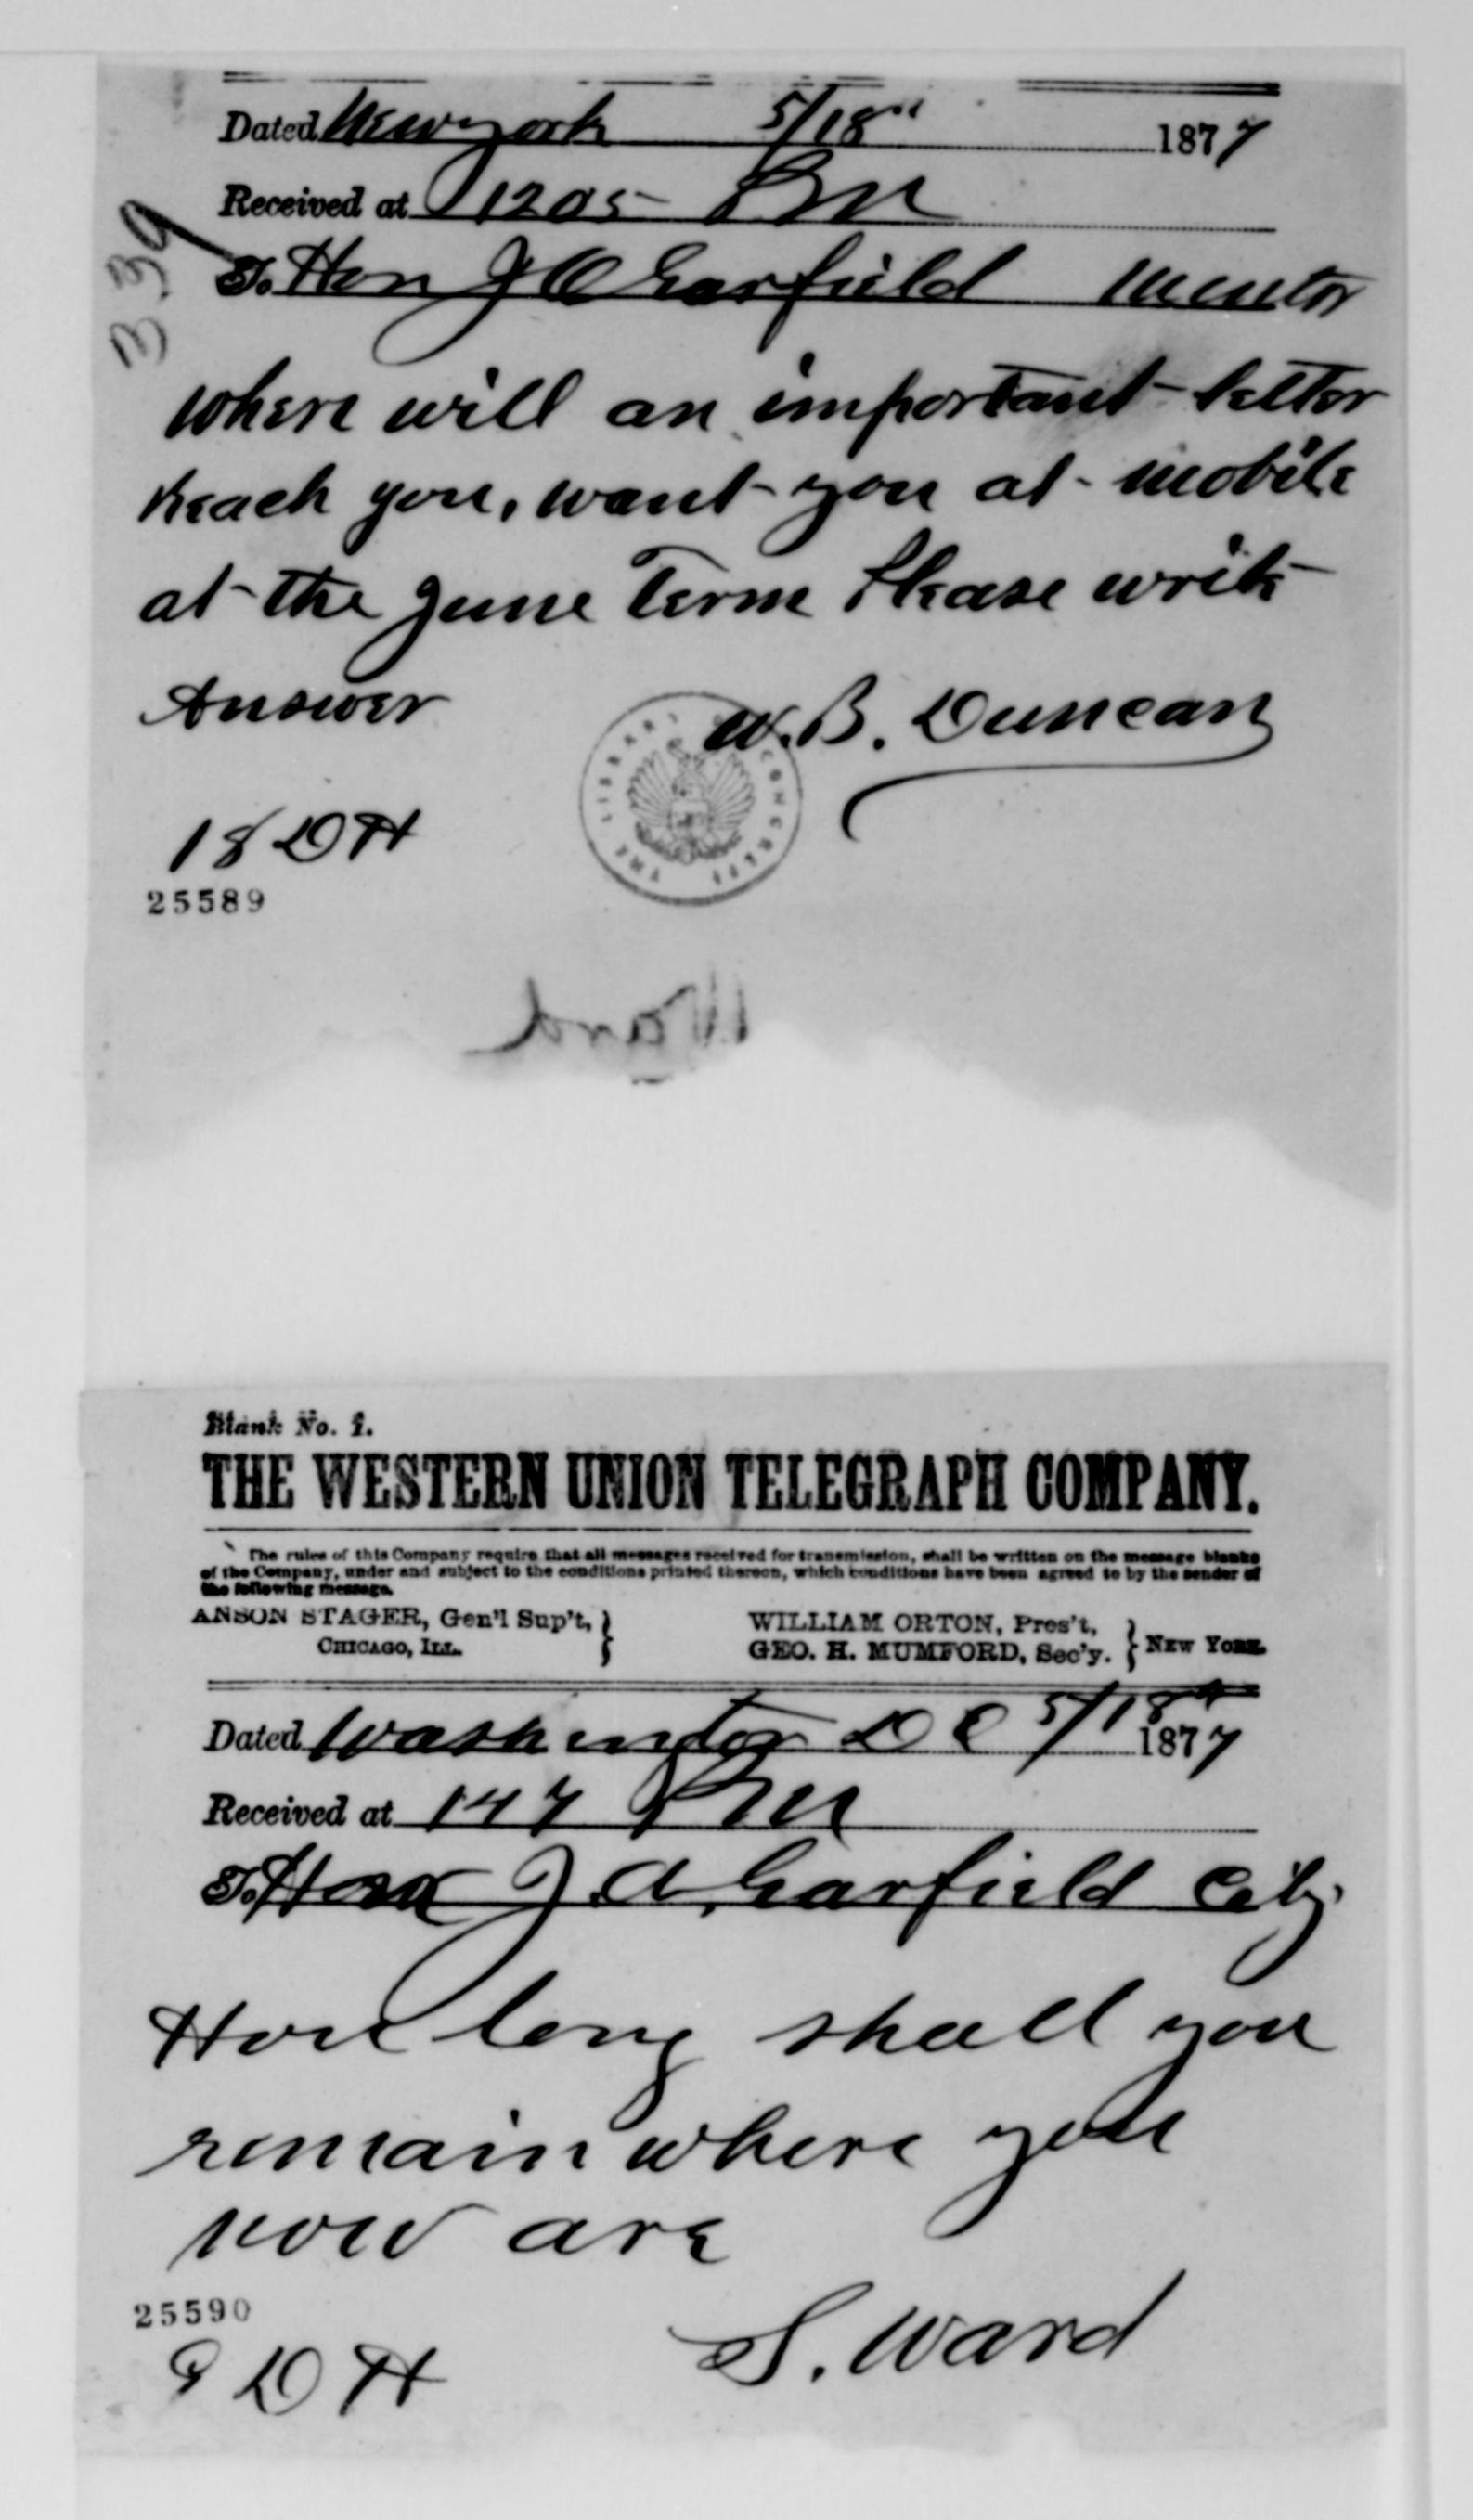 Dated New york 5/18" 1877
Received at 1205 Pm
339
To Hon J A Garfield Mentor
where will an important letter
Reach you, want you at mobile
at the June Term Please write
Answer W. B. Duncan
THE LIBRARY OF CONGRESS
18 DH
25589
Ward
Blank No. 1.
THE WESTERN UNION TELEGRAPH COMPANY.
The rules of this Company require that all messages received for transmission, shall be written on the message blanks
of the Company, under and subject to the conditions printed thereon, which conditions have been agreed to by the sender of
the following message.
ANSON STAGER, Gen'l Sup't, WILLIAM ORTON, Pres't,
CHICAGO, ILL. GEO. H. MUMFORD, Sec'y. NEW YORK.
Dated Washington D C 5/18 1877
Received at 147 Pm
To Hon J. A. Garfield City
How long shall you
remain where you
now are
25590
S. Ward
9 DH